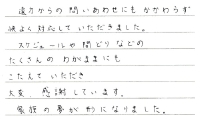 遠方からの問いあわせにもかかわらず
快よく対応していただきました。
スケジュールや間どりなどの
たくさんのわがままにも
こたえていただき
大変、感謝しています。
家族の夢が形になりました。